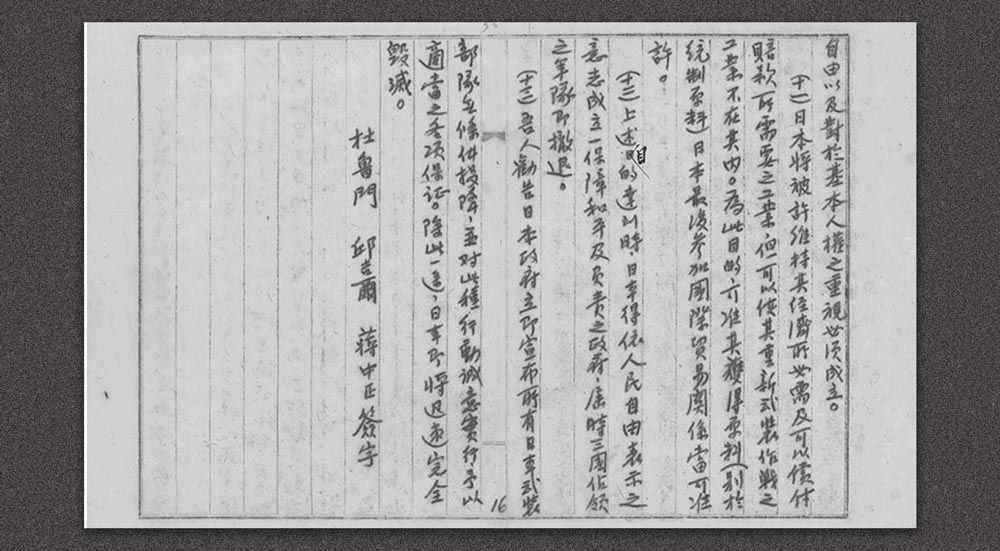 自由以及對於基本人權之重視必須成立。
(十一)日本將被許維持其經濟所必需及可以償付
賠款所需要之工業,但可以使其重新武裝作戰之
工業不在其內。為此目的,亦准其獲得原料(別於
統制原料)日本最後參加國際貿易關係當可准
許。
(十二)上述目的達到時、日本得依人民自由表示之
意志成立一保障和平及負責之政府,屆時三國佔領
之軍隊即撤退。
(十三)吾人勸告日本政府立即宣布所有日本武裝
部隊無條件投降,並对此種行動誠意實行予以
適當之各項保证。除此一途,日本即將迅速完全
毀滅。
杜魯門 邱吉爾 蔣中正 簽字
16